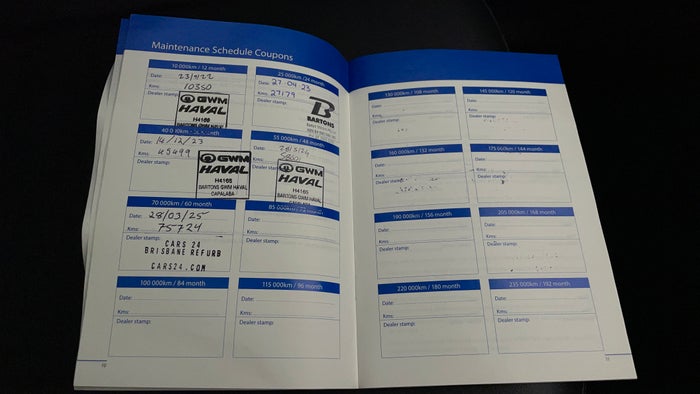 Maintenance Schedule Coupons
10 000km / 12 month
Date: 23/5/22
Kms: 10350
Dealer stamp:
GWM
HAVAL
H4165
BARTONS GWM HAVAL
25 000km /24 month
Date: 27.04.23
Kms: 27179
Dealer stamp:
B
BARTONS
40 0
Date: 14/12/23
Kms: 45499
Dealer stamp:
GWM
HAVAL
H4165
BARTONS GWM HAVAL
CAPALABA
55 000km / 48 month
Date:
Kms:
Dealer stamp:
GWM
HAVAL
H4165
BARTONS GWM HAVAL
CAPALABA
70 000km / 60 month
Date: 28/03/25
Kms: 75724
Dealer stamp:
CARS 24
BRISBANE REFURB
CARS24.COM
85 000km / 72 month
Date:
Kms:
Dealer stamp:
100 000km / 84 month
Date:
Kms:
Dealer stamp:
115 000km / 96 month
Date:
Kms:
Dealer stamp:
10
130 000km / 108 month
Date:
Kms:
Dealer stamp:
145 000km / 120 month
Date:
Kms:
Dealer stamp:
160 000km / 132 month
Date:
Kms:
Dealer stamp:
175 000km / 144 month
Date:
Kms:
Dealer stamp:
190 000km / 156 month
Date:
Kms:
Dealer stamp:
205 000km / 168 month
Date:
Kms:
Dealer stamp:
220 000km / 180 month
Date:
Kms:
Dealer stamp:
235 000km / 192 month
Date:
Kms:
Dealer stamp:
11